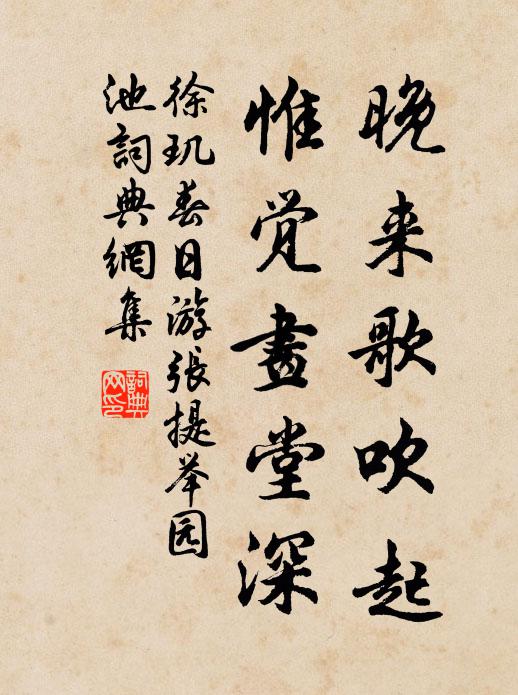 晚来歌吹起
惟觉畫堂深
徐玑春日游張提举园
池詞典網集
詞典
网印